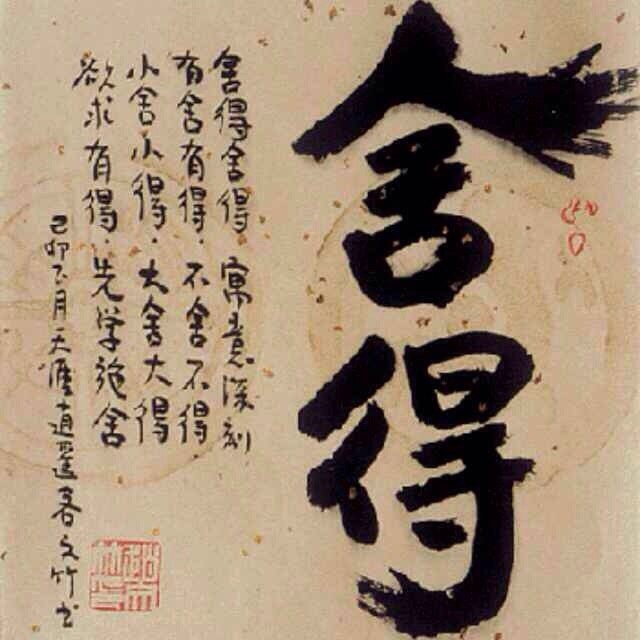 舍得
舍得舍得·寓意深刻
有舍有得·不舍不得
小舍小得·大舍大得
欲求有得·先学施舍
己卯六月天涯逍遥客文竹书